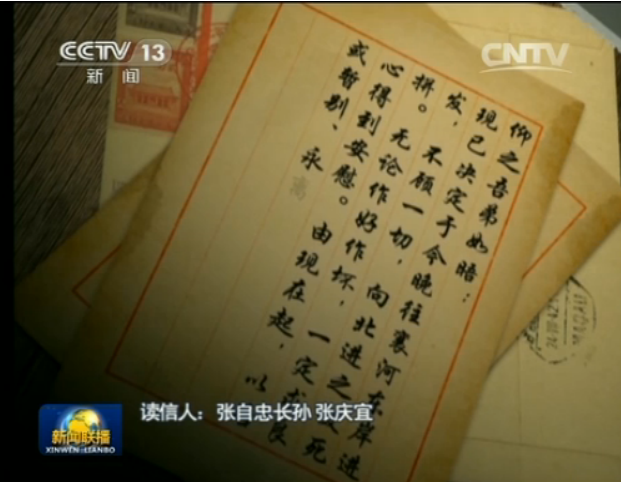 CCTV 13
新闻
CNTV
仰之吾弟如晤：
现已决定于今晚往襄河东岸进
发，不顾一切，向北进之死
拼。无论作好作坏，一定求良
心得到安慰。由现在起，以
或暂别、永离
读信人：张自忠长孙 张庆宜
新闻联播
XINWEN LIANBO